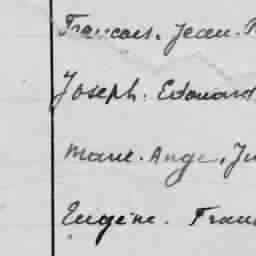 Francois. Jean.
Joseph. Edouard
Marie. Ange.
Eugène. Fran